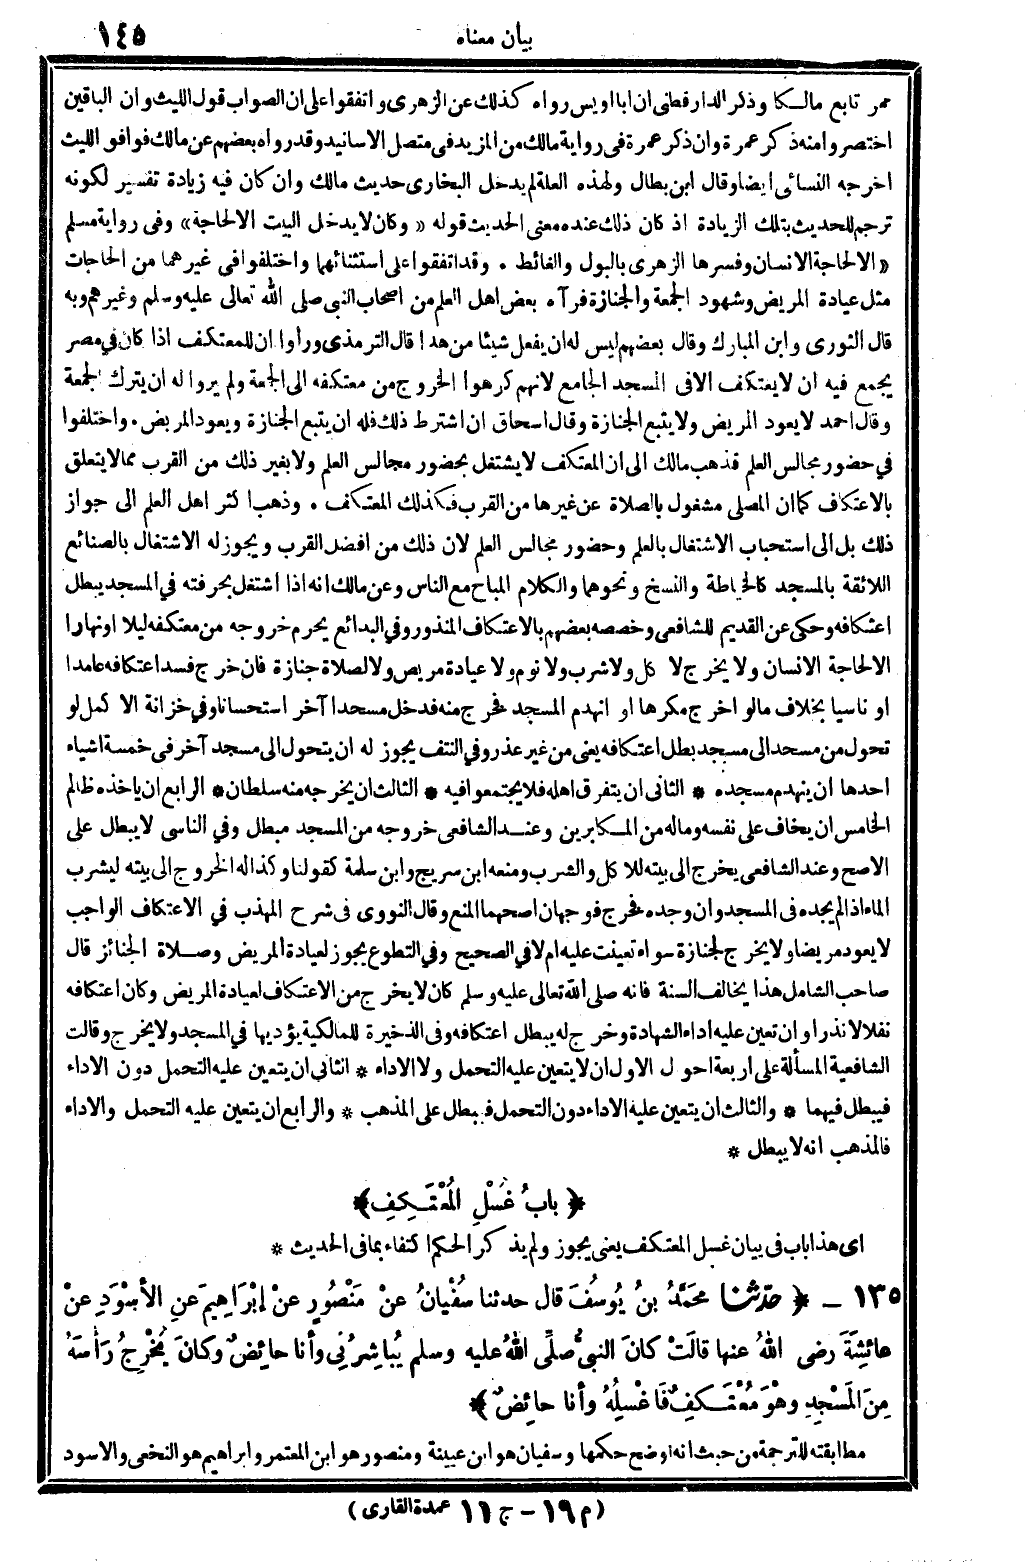 بيان معناه ١٤٥
عمر تابع مالكا وذكر الدارقطنى ان ابا اويس رواه كذلك عن الزهرى واتفقوا على ان الصواب قول الليث وان الباقين
اختصروا منه ذكر عمرة وان ذكر عمرة فى رواية مالك من المزيد فى متصل الاسانيد وقدرواه بعضهم عن مالك فوافق الليث
اخرجه النسائى ايضا وقال ابن بطال ولهذه العلة لم يدخل البخارى حديث مالك وان كان فيه زيادة تفسير لكونه
ترجم للحديث بتلك الزيادة اذ كان ذلك عنده معنى الحديث قوله « وكان لا يدخل البيت الا لحاجة» وفى رواية مسلم
« الا لحاجة الانسان وفسرها الزهرى بالبول والغائط . وقد اتفقوا على استثنائهما واختلفوا فى غيرهما من الحاجات
مثل عيادة المريض وشهود الجمعة والجنازة فرآه بعض اهل العلم من اصحاب النبى صلى الله تعالى عليه وسلم وغيرهم وبه
قال الثورى وابن المبارك وقال بعضهم ليس له ان يفعل شيئا من هذا قال الترمذى ورأوا ان للمعتكف اذا كان في مصر
يجمع فيه ان لا يعتكف الا فى المسجد الجامع لانهم كرهوا الخروج من معتكفه الى الجمعة ولم يروا له ان يترك الجمعة
وقال احمد لا يعود المريض ولا يتبع الجنازة وقال اسحاق ان اشترط ذلك فله ان يتبع الجنازة ويعود المريض . واختلفوا
في حضور مجالس العلم فذهب مالك الى ان المعتكف لا يشتغل بحضور مجالس العلم ولا بغير ذلك من القرب مما لا يتعلق
بالاعتكاف كما ان المصلى مشغول بالصلاة عن غيرها من القرب فكذلك المعتكف . وذهب اكثر اهل العلم الى جواز
ذلك بل الى استحباب الاشتغال بالعلم وحضور مجالس العلم لان ذلك من افضل القرب ويجوز له الاشتغال بالصنائع
اللائقة بالمسجد كالخياطة والنسخ ونحوهما والكلام المباح مع الناس وعن مالك انه اذا اشتغل بحرفته في المسجد يبطل
اعتكافه وحكى عن القديم للشافعى وخصصه بعضهم بالاعتكاف المنذور وفي البدائع يحرم خروجه من معتكفه ليلا او نهارا
الا لحاجة الانسان ولا يخرج لا كل ولا شرب ولا نوم ولا عيادة مريض ولا لصلاة جنازة فان خرج فسد اعتكافه عامدا
او ناسيا بخلاف مالو اخرج مكرها او انهدم المسجد فخرج منه فدخل مسجدا آخر استحسانا وفي خزانة الاكمل لو
تحول من مسجد الى مسجد بطل اعتكافه يعنى من غير عذر وفي النتف يجوز له ان يتحول الى مسجد آخر فى خمسة اشياء
احدها ان ينهدم مسجده * الثانى ان يتفرق اهله فلا يجتمعوا فيه * الثالث ان يخرجه منه سلطان * الرابع ان ياخذه ظالم
الخامس ان يخاف على نفسه وماله من المكابرين وعند الشافعى خروجه من المسجد مبطل وفي الناسى لا يبطل على
الاصح وعند الشافعى يخرج الى بيته للاكل والشرب ومنعه ابن سريج وابن سلمة كقولنا وكذا له الخروج الى بيته ليشرب
الماء اذا لم يجده فى المسجد وان وجده فخرج فوجهان اصحهما المنع وقال النووى فى شرح المهذب في الاعتكاف الواجب
لا يعود مريضا ولا يخرج لجنازة سواء تعينت عليه ام لا في الصحيح وفي التطوع يجوز لعيادة المريض وصلاة الجنائز قال
صاحب الشامل هذا يخالف السنة فانه صلى الله تعالى عليه وسلم كان لا يخرج من الاعتكاف لعيادة المريض وكان اعتكافه
نفلا لا نذرا وان تعين عليه اداء الشهادة وخرج له يبطل اعتكافه وفى الذخيرة للمالكية يؤديها في المسجد ولا يخرج وقالت
الشافعية المسألة على اربعة احوال الاول ان لا يتعين عليه التحمل ولا الاداء * الثانى ان يتعين عليه التحمل دون الاداء
فيبطل فيهما * والثالث ان يتعين عليه الاداء دون التحمل فيبطل على المذهب * والرابع ان يتعين عليه التحمل والاداء
فالمذهب انه لا يبطل *
﴿ بابُ غُسْلِ المُعْتَكِفِ ﴾
اى هذا باب فى بيان غسل المعتكف يعنى يجوز ولم يذكر الحكم اكتفاء بما فى الحديث *
١٣٥ ــ ﴿ حدّثنا محَمَّدُ بنُ يُوسُفَ قال حدثنا سُفْيانُ عنْ مَنْصُورٍ عنْ إبْرَاهِيمَ عنِ الأسْوَدِ عنْ
عائِشَةَ رضى اللهُ عنها قالَتْ كانَ النبىُّ صلَّى اللهُ عليه وسلم يُباشِرُنِى وأنا حائِضٌ وكانَ يُخْرِجُ رَأسَهُ
مِنَ المَسْجِدِ وهْوَ مُعْتَكِفٌ فَاغْسِلُهُ وأنا حائِضٌ ﴾
مطابقته للترجمة من حيث انه اوضح حكمها وسفيان هو ابن عيينة ومنصور هو ابن المعتمر وابراهيم هو النخعى والاسود
(م ١٩ – ج ١١ عمدة القارى)